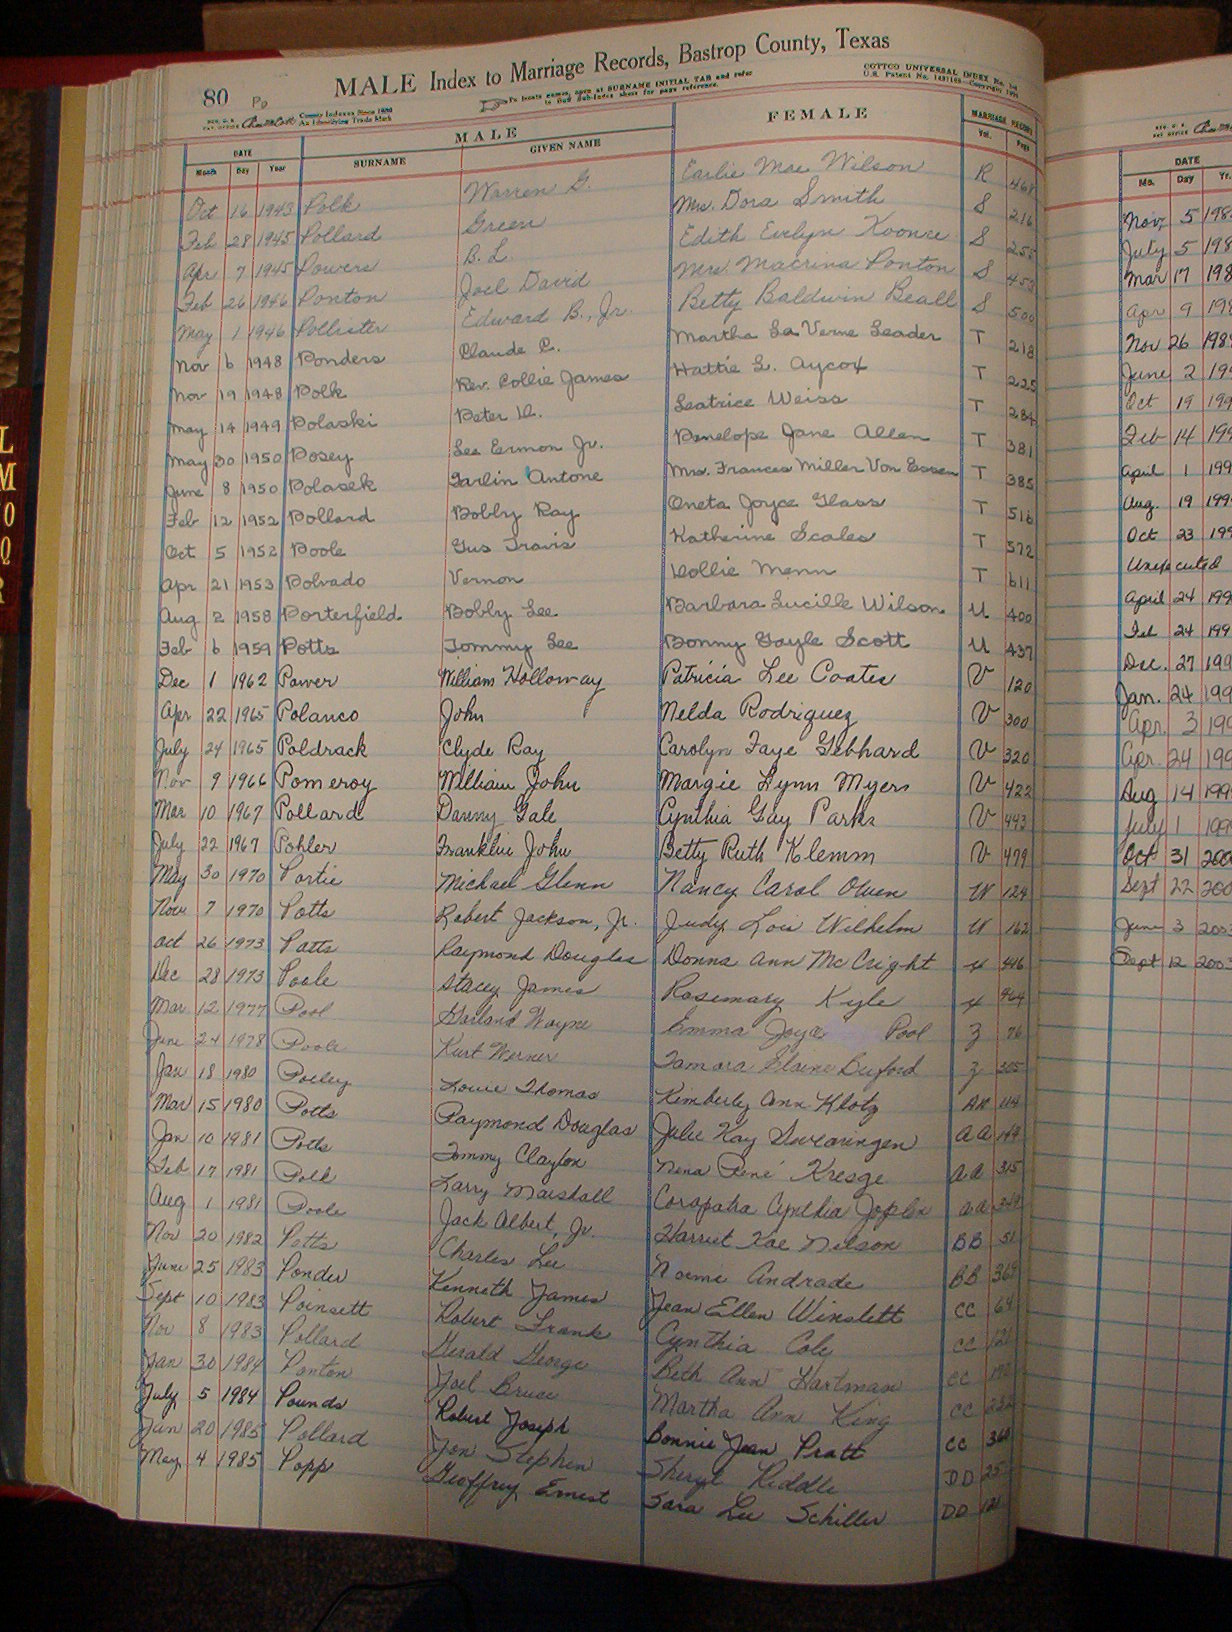 80 Po
MALE Index to Marriage Records, Bastrop County, Texas
To locate names, open at SURNAME INITIAL TAB and refer
to Sub-Index sheet for page reference.
COTTCO UNIVERSAL INDEX
REG. U. S. PAT. OFFICE County Indexes Since 1888
An Identifying Trade Mark
MALE FEMALE MARRIAGE RECORD
DATE SURNAME GIVEN NAME Vol. Page
Month Day Year
Oct 16 1943 Polk Warren G. Earlie Mae Wilson R 468
Feb 28 1945 Pollard Green Mrs. Dora Smith S 216
Apr 7 1945 Powers B. L. Edith Evelyn Koonce S 255
Feb 26 1946 Ponton Joel David Mrs. Macrina Ponton S 453
May 1 1946 Pollister Edward B., Jr. Betty Baldwin Beall S 500
Nov 6 1948 Ponders Claude C. Martha La Verne Leader T 218
Nov 19 1948 Polk Rev. Collie James Hattie L. Aycox T 225
May 14 1949 Polaski Peter D. Leatrice Weiss T 284
May 30 1950 Posey Lee Ermon Jr. Penelope Jane Allen T 381
June 8 1950 Polasek Garlin Antone Mrs. Frances Miller Von Essen T 385
Feb 12 1952 Pollard Bobby Ray Oneta Joyce Glass T 516
Oct 5 1952 Poole Gus Travis Katherine Scales T 572
Apr 21 1953 Polvado Vernon Dollie Menn T 611
Aug 2 1958 Porterfield Bobby Lee Barbara Lucille Wilson U 400
Feb 6 1959 Potts Tommy Lee Bonny Gayle Scott U 437
Dec 1 1962 Power William Holloway Patricia Lee Coates V 120
Apr 22 1965 Polanco John Nelda Rodriguez V 300
July 24 1965 Poldrack Clyde Ray Carolyn Faye Gebhard V 320
Nov 9 1966 Pomeroy William John Margie Lynn Myers V 422
Mar 10 1967 Pollard Danny Gale Cynthia Gay Parks V 443
July 22 1967 Pohler Franklin John Betty Ruth Klemm V 479
May 30 1970 Portie Michael Glenn Nancy Carol Owen W 124
Nov 7 1970 Potts Robert Jackson, Jr. Judy Lois Wilhelm W 162
Oct 26 1973 Potts Raymond Douglas Donna Ann McCright X 446
Dec 28 1973 Poole Stacey James Rosemary Kyle X
Mar 12 1977 Pool Garland Wayne Emma Joyce Pool Z 76
June 24 1978 Poole Kurt Werner Tamara Elaine Buford Z 305
Jan 18 1980 Polley Louie Thomas Kimberly Ann Klotz AA 114
Mar 15 1980 Potts Raymond Douglas Julie Kay Swearingen AA 149
Jan 10 1981 Potts Tommy Clayton Nena René Kresge AA 315
Feb 17 1981 Polk Larry Marshall Corapatra Cynthia Joplin AA
Aug 1 1981 Poole Jack Albert, Jr. Harriet Kae Nelson BB 51
Nov 20 1982 Potts Charles Lee Noemi Andrade BB 369
June 25 1983 Ponder Kenneth James Jean Ellen Winslett CC 64
Sept 10 1983 Poinsett Robert Frank Cynthia Cole CC 121
Nov 8 1983 Pollard Gerald George Beth Ann Hartman CC
Jan 30 1984 Ponton Joel Bruce Martha Ann King CC 232
July 5 1984 Pounds Robert Joseph Bonnie Jean Pratt CC 360
Jan 20 1985 Pollard Jon Stephen Sheryl Riddle DD 25
May 4 1985 Popp Geoffrey Ernest Sara Lee Schiller DD 121
DATE
Mo. Day Yr.
Nov. 5 198
July 5 198
Mar 17 198
Apr 9 198
Nov 26 198
June 2 199
Oct 19 199
Feb 14 199
April 1 199
Aug. 19 199
Oct 23 199
Unexecuted
April 24 199
Feb 24 199
Dec. 27 199
Jan. 24 199
Apr. 3 199
Apr. 24 199
Aug 14 199
July 1 199
Oct 31 200
Sept 22 200
June 3 2003
Sept 12 2003
L
M
O
Q
R